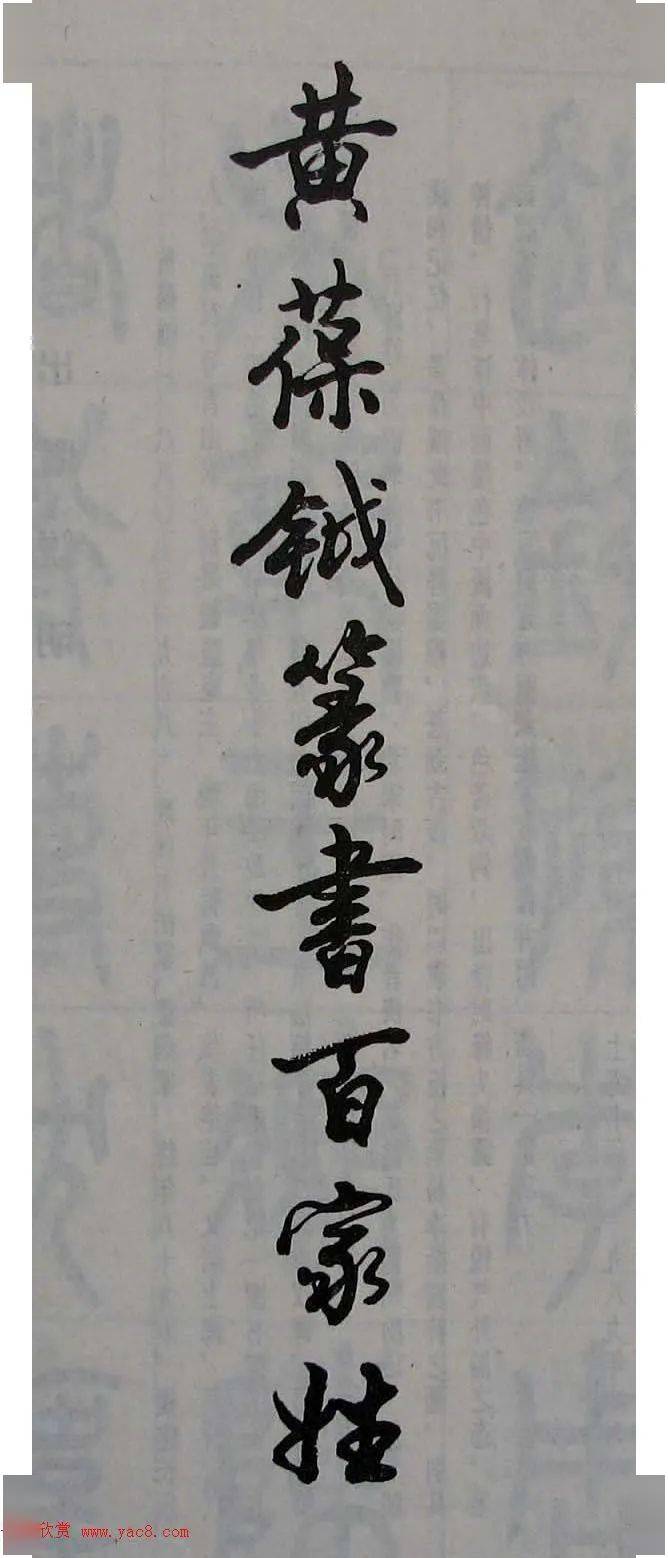 黄葆鉞篆書百家姓
欣赏 www.yac8.com